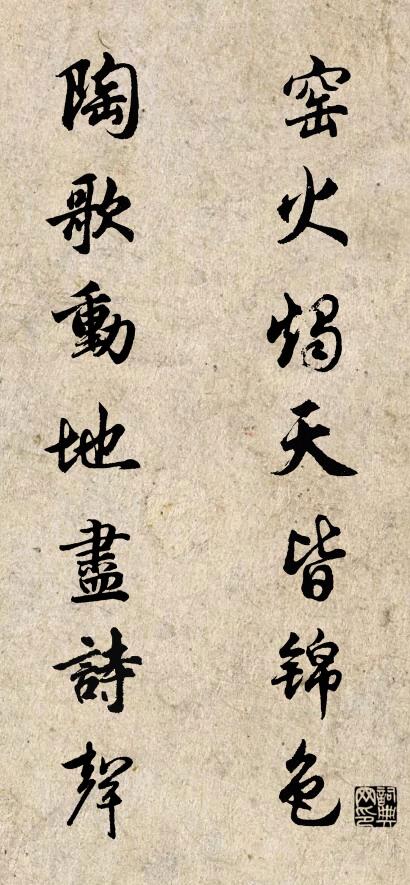 窑火燭天皆锦色
陶歌動地盡詩聲
詞典网印